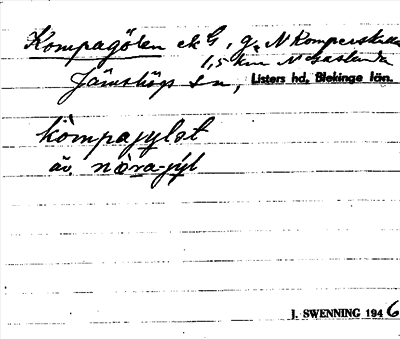 Kompagölen ek G, g. N Komperskulla
1,5 km N
Jämshögs sn, Listers hd, Blekinge län.
kòmpajylet
äv. nòra-jyl
J. SWENNING 1946